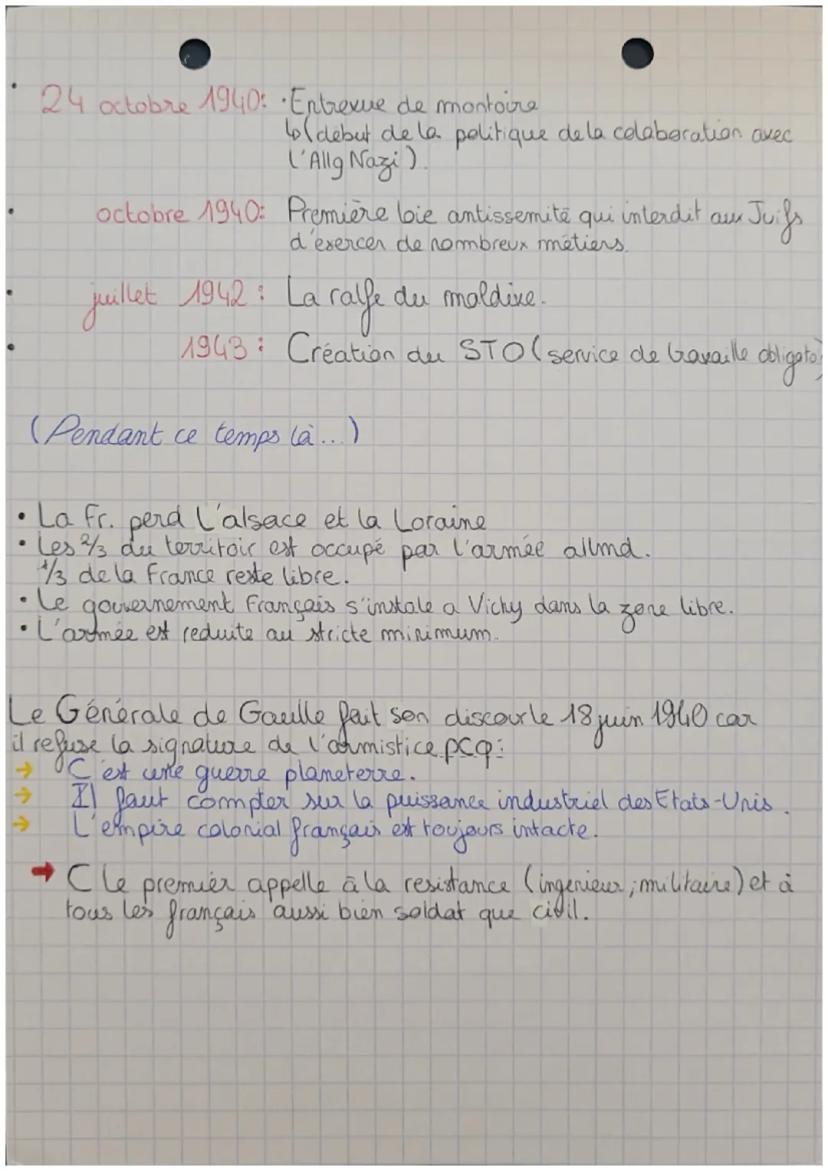 • 24 octobre 1940: • Entrevue de montoire
↳(debut de la politique de la colaboration avec
l'Allg Nazi).
• octobre 1940: Première loie antissemité qui interdit aux Juifs
d'exercer de nombreux métiers.
• juillet 1942: La ralfe du maldive.
• 1943: Création du STO (service de travaille obligato)
(Pendant ce temps là...)
• La Fr. perd l'alsace et la Loraine
• Les 2/3 du territoir est occupé par l'armée allmd.
1/3 de la France reste libre.
• Le gouvernement Français s'instale a Vichy dans la zone libre.
• L'armée est reduite au stricte minimum.
Le Générale de Gaulle fait son discour le 18 juin 1940 car
il refuse la signature de l'armistice pcq:
→ C'est une guerre planeterre.
→ Il faut compter sur la puissance industriel des Etats-Unis.
→ L'empire colonial français est toujours intacte.
→ C le premier appelle à la resistance (ingenieur; militaire) et à
tous les français aussi bien soldat que civil.